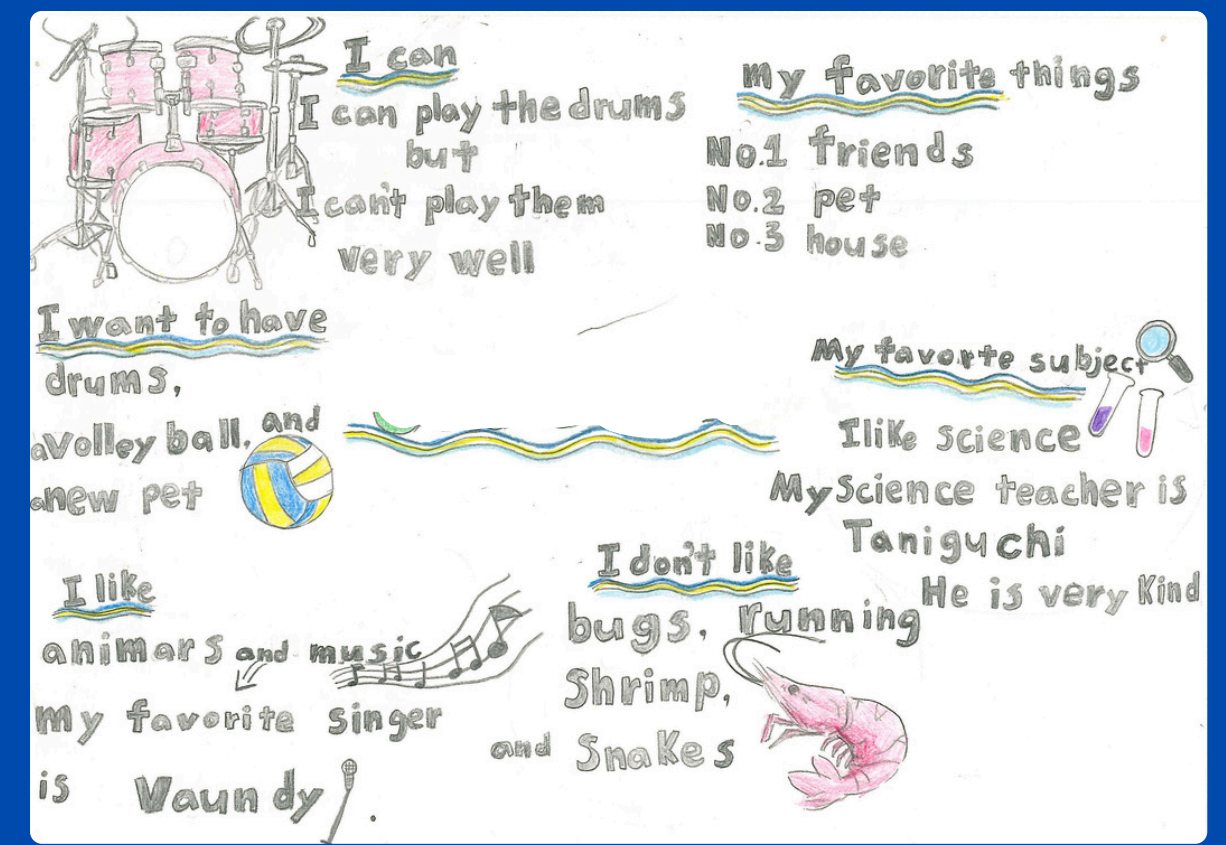 I can
I can play the drums
but
I can't play them
very well
My favorite things
No.1 friends
No.2 pet
No.3 house
I want to have
drums,
a volley ball, and
a new pet
My favorte subject
I like science
My science teacher is
Taniguchi
He is very Kind
I like
animars and music
my favorite singer
is Vaundy.
I don't like
bugs, running
Shrimp,
and Snakes